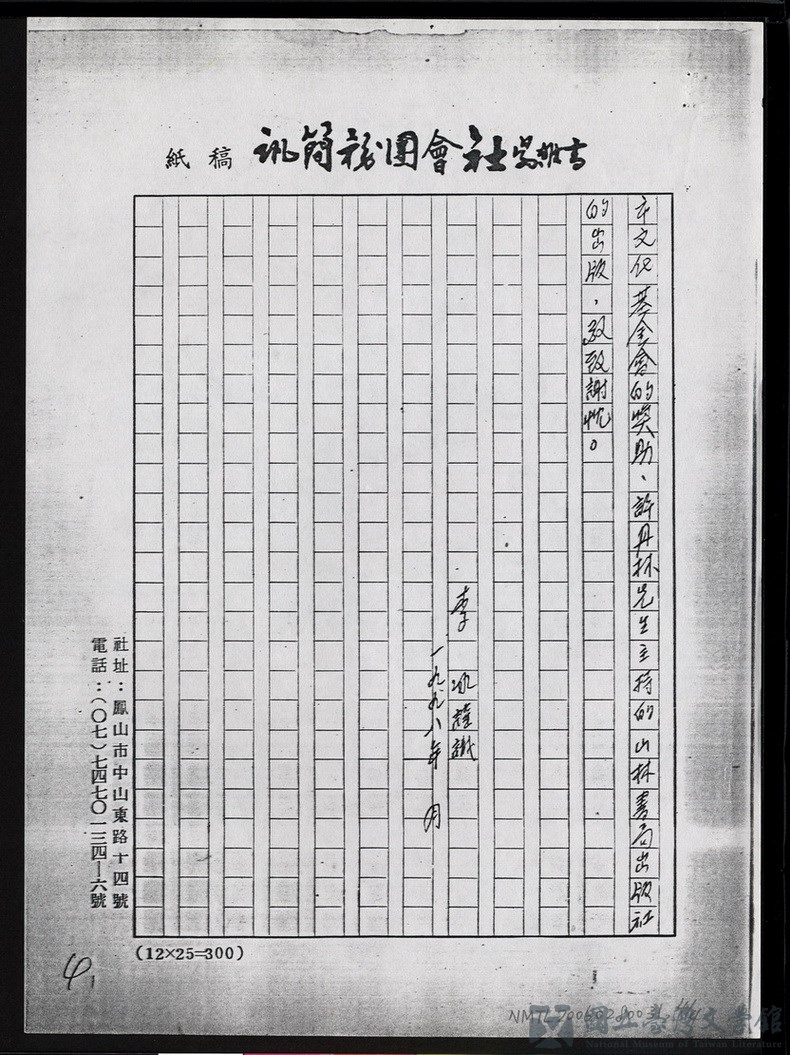 訊簡務團會社
稿紙
市文化基金會的獎助、許丹林先生主持的山林書局出版社
的出版,敬致謝忱。
李 謹識
一九九八年 月
社址:鳳山市中山東路十四號
電話:(〇七)七四七〇一三四-六號
(12×25=300)
國立臺灣文學館
National Museum of Taiwan Literature